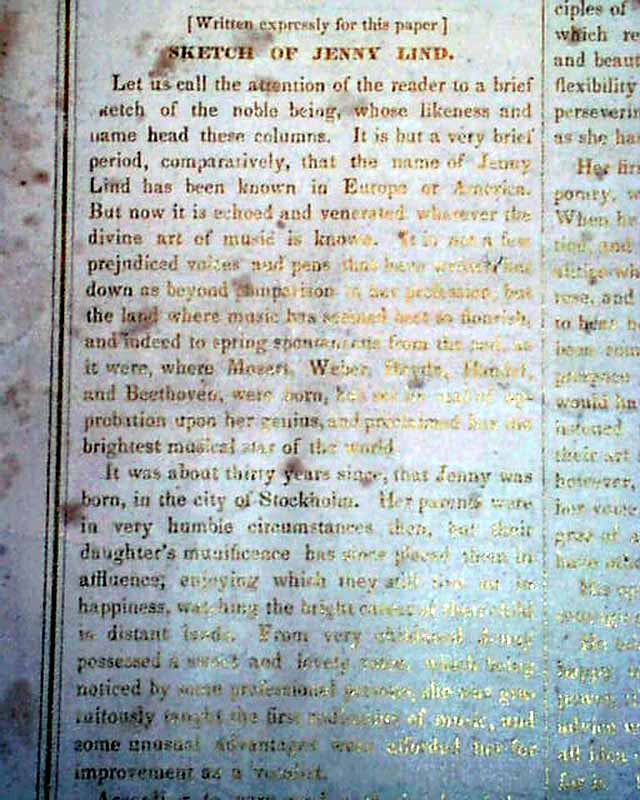 [Written expressly for this paper]
SKETCH OF JENNY LIND.
Let us call the attention of the reader to a brief
sketch of the noble being, whose likeness and
name head these columns. It is but a very brief
period, comparatively, that the name of Jenny
Lind has been known in Europe or America.
But now it is echoed and venerated wherever the
divine art of music is known. It is not a few
prejudiced voices and pens that have written her
down as beyond comparison in her profession, but
the land where music has seemed best to flourish,
and indeed to spring spontaneous from the soil, as
it were, where Mozart, Weber, Haydn, Handel,
and Beethoven, were born, has set its seal of ap-
probation upon her genius, and proclaimed her the
brightest musical star of the world
It was about thirty years since, that Jenny was
born, in the city of Stockholm. Her parents were
in very humble circumstances then, but their
daughter's munificence has since placed them in
affluence, enjoying which they still live on in
happiness, watching the bright career of their child
in distant lands. From very childhood Jenny
possessed a sweet and lovely voice, which being
noticed by some professional persons, she was gra-
tuitously taught the first rudiments of music, and
some unusual advantages were afforded her for
improvement as a vocalist.
ciples of
which re
and beaut
flexibility
persever
as she ha
Her firs
When he
and
rose, and
to hear
would ha
listened
their art
however,
her voice
have
happy
power,
advice w
all idea
for is.